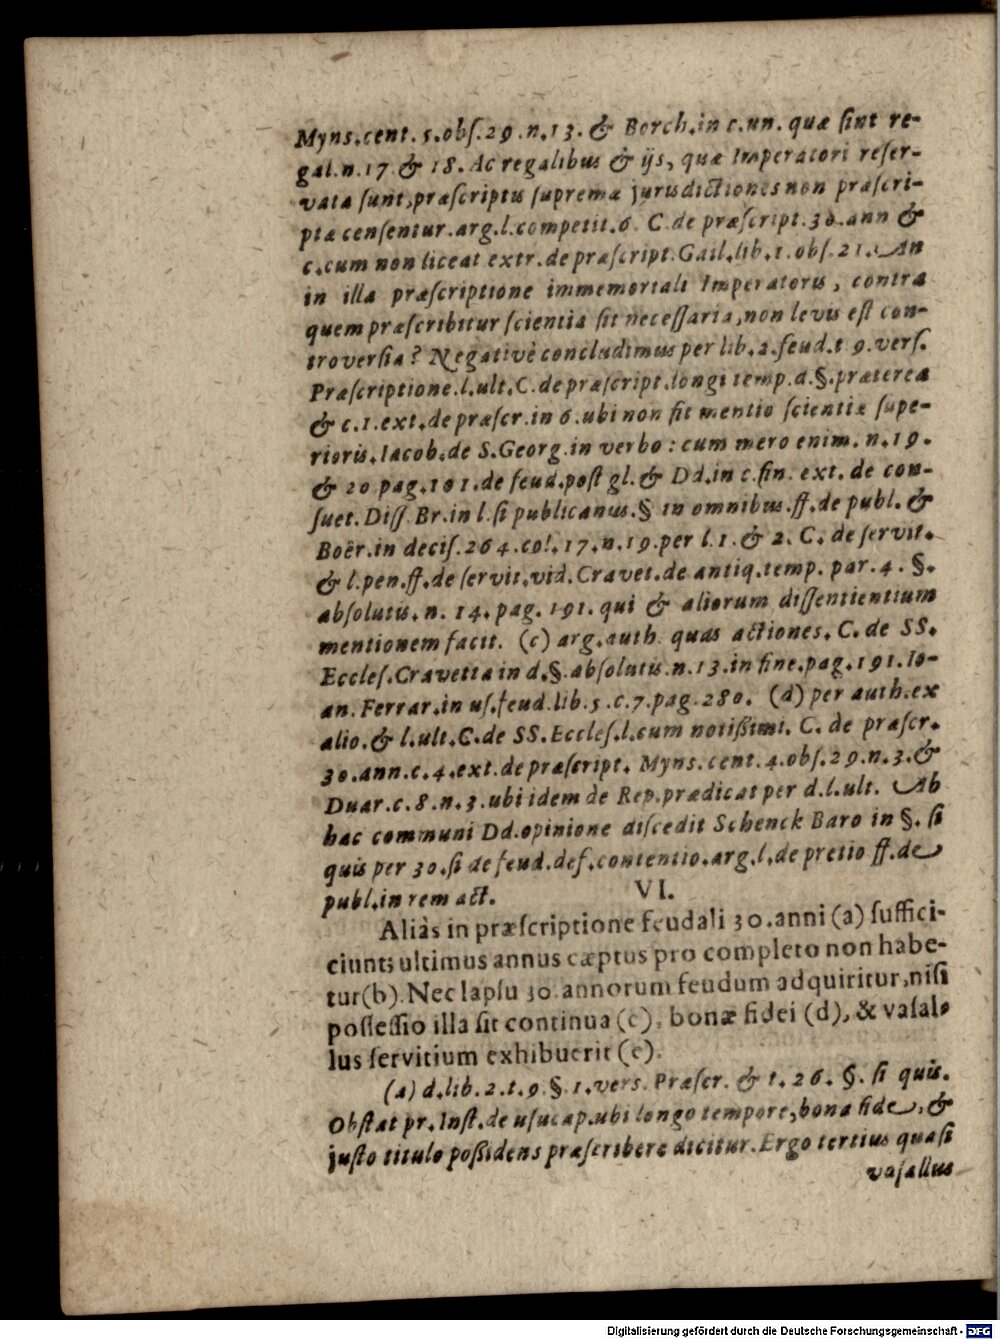 Myns.cent. 5.obſ.29.n.13. & Borch.in c.un. quæ ſint re-
gal.n.17 & 18. Ac regalibus & ijs, quæ Imperatori reſer-
vata ſunt,præſcriptis ſupremæ jurisdictiones non præſcri-
ptæ cenſentur.arg.l.competit.6. C.de præſcript.30.ann &
c.cum non liceat extr.de præſcript.Gail.lib.1.obſ.21. An
in illa præſcriptione immemoriali Imperatoris, contra
quem præſcribitur ſcientia ſit neceſſaria,non levis eſt con-
troverſia? Negativè concludimus per lib.2.feud.t 9.verſ.
Præſcriptione.l.ult.C.de præſcript.longi temp.d.§.præterea
& c.1.ext.de præſcr.in 6.ubi non fit mentio ſcientiæ ſupe-
rioris.Iacob.de S.Georg.in verbo : cum mero enim. n.19.
& 20 pag.101.de feud.poſt gl.& Dd.in c.fin. ext. de con-
ſuet. Diſſ. Br.in l.ſi publicanus.§ in omnibus.ff.de publ. &
Boër.in deciſ.264.col.17.n.19.per l.1.& 2. C. de ſervit.
& l.pen.ff.de ſervit.vid.Cravet.de antiq.temp. par.4. §.
abſolutis.n. 14.pag. 191. qui & aliorum diſſentientium
mentionem facit. (c) arg.auth. quas actiones. C. de SS.
Eccleſ.Cravetta in d.§.abſolutis.n.13.in fine.pag.191.Io-
an. Ferrar.in uſ.feud.lib.5.c.7.pag.280. (d) per auth.ex
alio.& l.ult.C.de SS.Eccleſ.l.cum notißimi. C. de præſcr.
30.ann.c.4.ext.de præſcript. Myns.cent.4.obſ.29.n.3.&
Duar.c.8.n.3.ubi idem de Rep.prædicat per d.l.ult. Ab
hac communi Dd.opinione diſcedit Schenck Baro in §. ſi
quis per 30.ſi de feud.def.contentio.arg.l.de pretio ff.de
publ.in rem act.
VI.
Aliàs in præſcriptione feudali 30.anni (a) ſuffici-
ciunt; ultimus annus cæptus pro completo non habe-
tur(b).Nec lapſu 30 annorum feudum adquiritur,niſi
poſſeſſio illa ſit continua (c), bonæ fidei (d), & vaſal-
lus ſervitium exhibuerit (e).
(a) d.lib.2.t.9.§.1.vers. Præſcr. & t.26. §. ſi quis.
Obſtat pr.Inſt.de uſucap.ubi longo tempore,bona fide, &
juſto titulo poßidens præſcribere dicitur.Ergo tertius quaſi
vaſallus
Digitalisierung gefördert durch die Deutsche Forschungsgemeinschaft - DFG